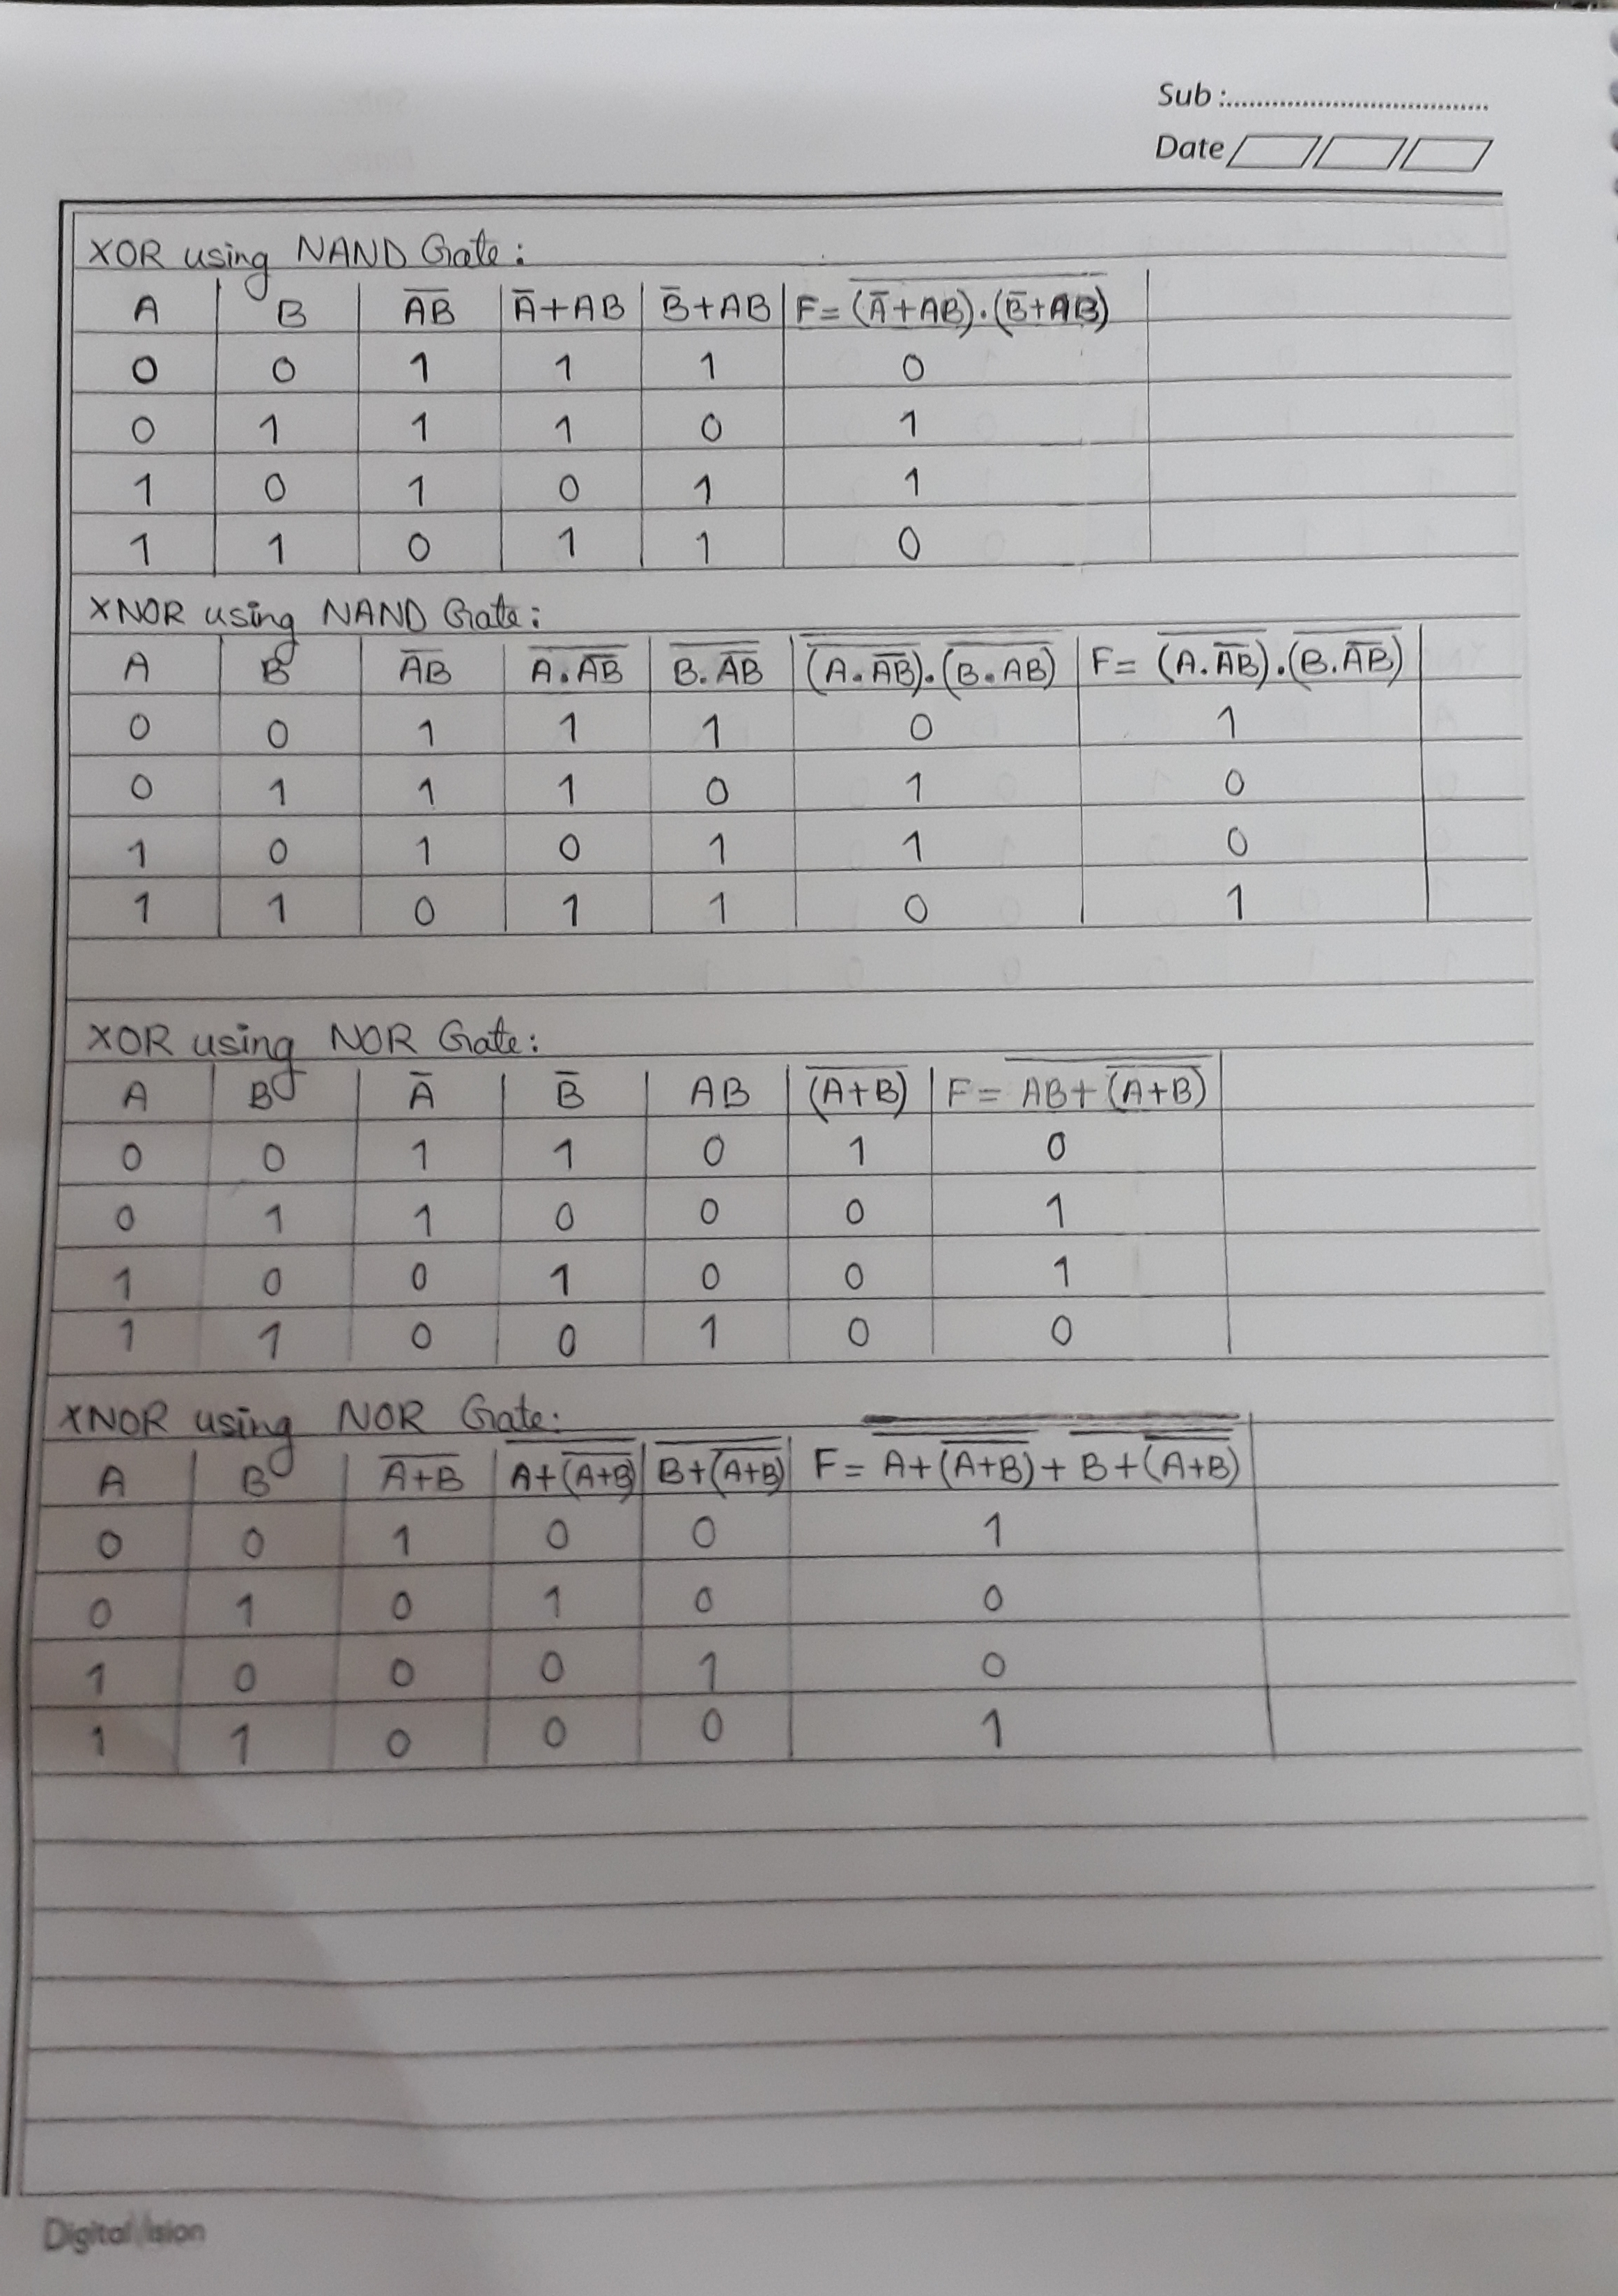 Sub :
Date
XOR using NAND Gate:
A B A̅B̅ A̅+AB B̅+AB F= (A̅+AB).(B̅+AB)
0 0 1 1 1 0
0 1 1 1 0 1
1 0 1 0 1 1
1 1 0 1 1 0
XNOR using NAND Gate:
A B A̅B̅ A.A̅B̅ B.A̅B̅ (A.A̅B̅).(B.AB) F= (A.A̅B̅).(B.A̅B̅)
0 0 1 1 1 0 1
0 1 1 1 0 1 0
1 0 1 0 1 1 0
1 1 0 1 1 0 1
XOR using NOR Gate:
A B A̅ B̅ AB (A+B) F= AB+(A+B)
0 0 1 1 0 1 0
0 1 1 0 0 0 1
1 0 0 1 0 0 1
1 1 0 0 1 0 0
XNOR using NOR Gate:
A B A+B A+(A+B) B+(A+B) F= A+(A+B)+B+(A+B)
0 0 1 0 0 1
0 1 0 1 0 0
1 0 0 0 1 0
1 1 0 0 0 1
Digital Vision